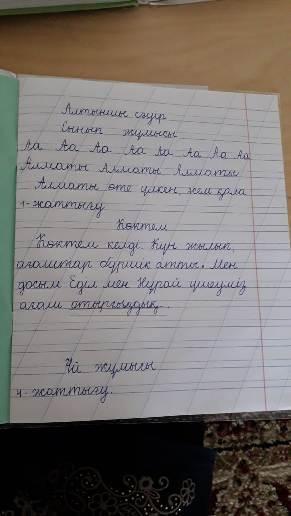 Алтыншы сәуір
Сынып жұмысы
Аа Аа Аа Аа Аа Аа Аа Аа
Алматы Алматы Алматы
Алматы өте үлкен, кең қала
1-жаттығу
Көктем
Көктем келді. Күн жылып,
ағаштар бүршік атты. Мен
досым Еділ мен Нұрай үшеуміз
ағаш отырғыздық.
Үй жұмысы
4-жаттығу.